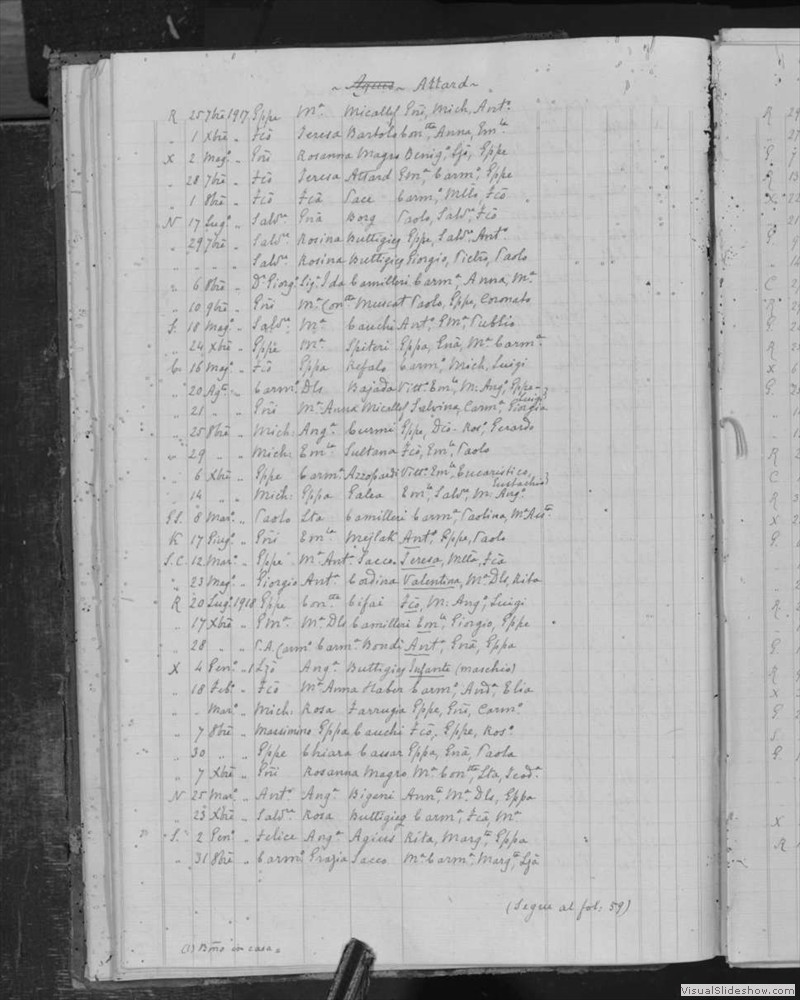 ~ Agius ~ Attard ~
R 25 7bre 1917 Gppe Mª Micallef Gni, Mich, Antº
" 1 Xbre " Fcō Teresa Bartolo Conttª, Anna, Emlª
X 2 Magº " Gni Rosanna Magro Benigº, Ljō, Gppe
" 28 7bre " Fcō Teresa Attard Emª, Carmº, Gppe
" 1 8bre " Fcō Fcā Pace Carmº, Mttō, Fcō
N 17 Lugº " Salvʳᵉ Gnā Borg Paolo, Salvʳᵉ, Fcō
" 29 7bre " Salvʳᵉ Rosina Buttigieg Gppe, Salvʳᵉ, Antº
" " " " Salvʳᵉ Rosina Buttigieg Giorgio, Pietro, Paolo
" 6 8bre " Dʳ Giorgº Sigª Ida Camilleri Carmª, Anna, Mª
" 10 9bre " Gni Mª Conttª Muscat Paolo, Gppe, Coronato
S. 18 Magº " Salvʳᵉ Mª Cauchi Antº, Gmª, Publio
" 24 Xbre " Gppe Mª Spiteri Gppa, Gnā, Mª Carmª
C 16 Magº " Fcō Gppa Refalo Carmº, Mich, Luigi
" 20 Agº " Carmº Dls Bajada Vittº Emlª, M. Angº, Gppe
Luigi
" 21 " " Gni Mª Anna Micallef Salvina, Carmª, Giorgia
" 25 8bre " Mich: Angª Curmi Gppe, Dcō - Rosº, Gerardo
" 29 " " Mich: Emlª Sultana Fcō, Emlª, Paolo
" 6 Xbre " Gppe Carmª Azzopardi Vittº Emlª, Eucaristico,
Eustachio
" 14 " " Mich: Gppa Galea Emlª, Salvʳᵉ, M. Angº
P.S. 8 Marº " Paolo Lta Camilleri Carmª, Paolina, Mª Assª
K 17 Giugº " Gni Emlª Mejlak Antº, Gppe, Paolo
S.C. 12 Marº " Gppe Mª Antª Sacco Teresa, Mttā, Fcā
" 23 Magº " Giorgio Antª Cordina Valentina, Mª Dls, Rita
R 20 Lugº 1918 Gppe Conttª Cifai Fcō, M. Angº, Luigi
" 17 Xbre " Gmª Mª Dls Camilleri Emlª, Giorgio, Gppe
" 28 " " P.A. Carmº Carmª Bondi Antª, Gnā, Gppa
X 4 Genº " Ljō Angª Buttigieg Infante (maschio)
" 18 Febº " Fcō Mª Anna Haber Carmº, Andª, Elia
" " Marº " Mich: Rosa Farrugia Gppe, Gni, Carmº
" 7 8bre " Massimino Gppa Cauchi Fcō, Gppe, Rosº
" 30 " " Gppe Chiara Cassar Gppa, Gnā, Paola
" 7 Xbre " Gni Rosanna Magro Mª Conttª, Lta, Teodª
N 25 Marº " Antº Angª Bigeni Anntª, Mª Dls, Gppa
" 23 Xbre " Salvʳᵉ Rosa Buttigieg Carmª, Fcā, Mª
S. 2 Genº " Felice Angª Agius Rita, Margtª, Gppa
" 31 8bre " Carmº Grazia Sacco Mª Carmª, Margtª, Ljā
(Segue al fol: 59)
(1) Bmo in casa.
VisualSlideshow.com